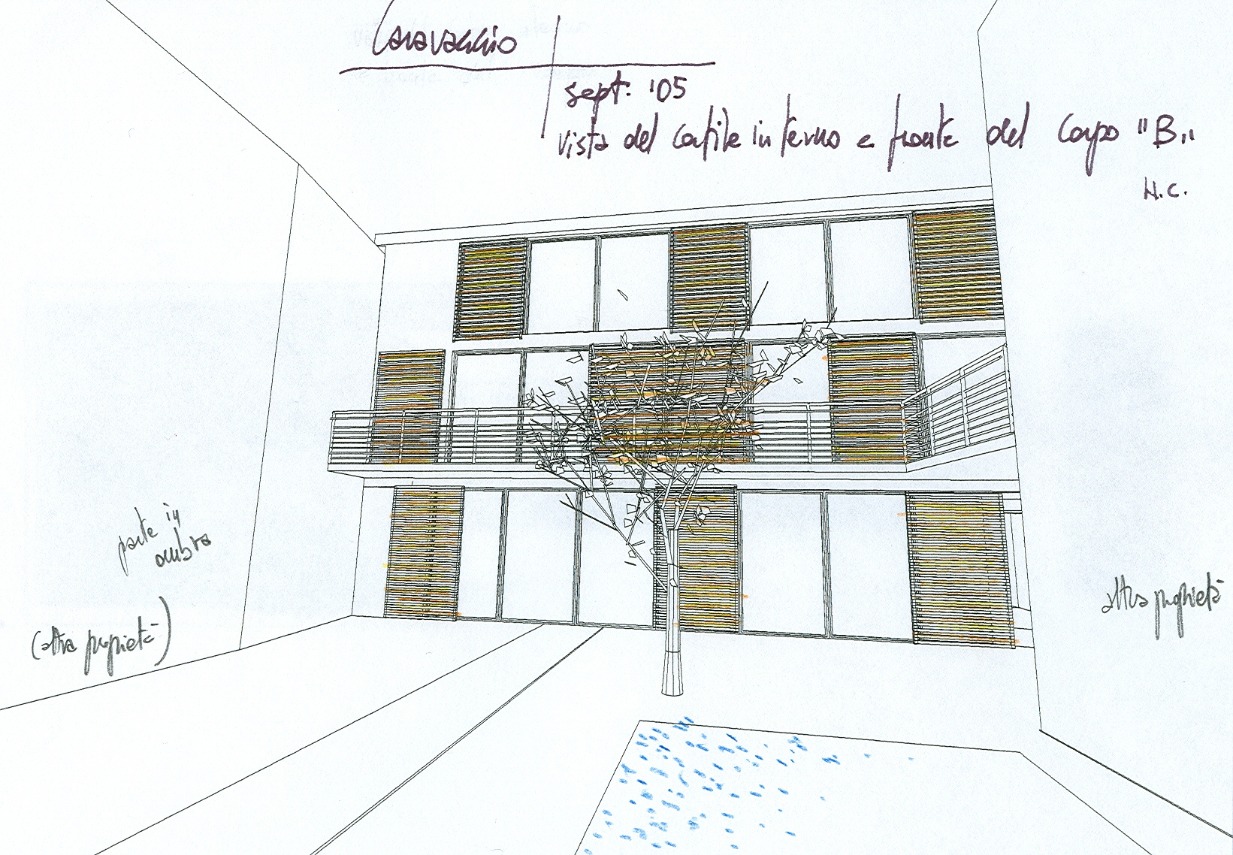 Caravaggio
sept: '05
vista del cortile interno e fronte del Corpo "B"
N.C.
parte in
ombra
(altra proprietà)
altra proprietà